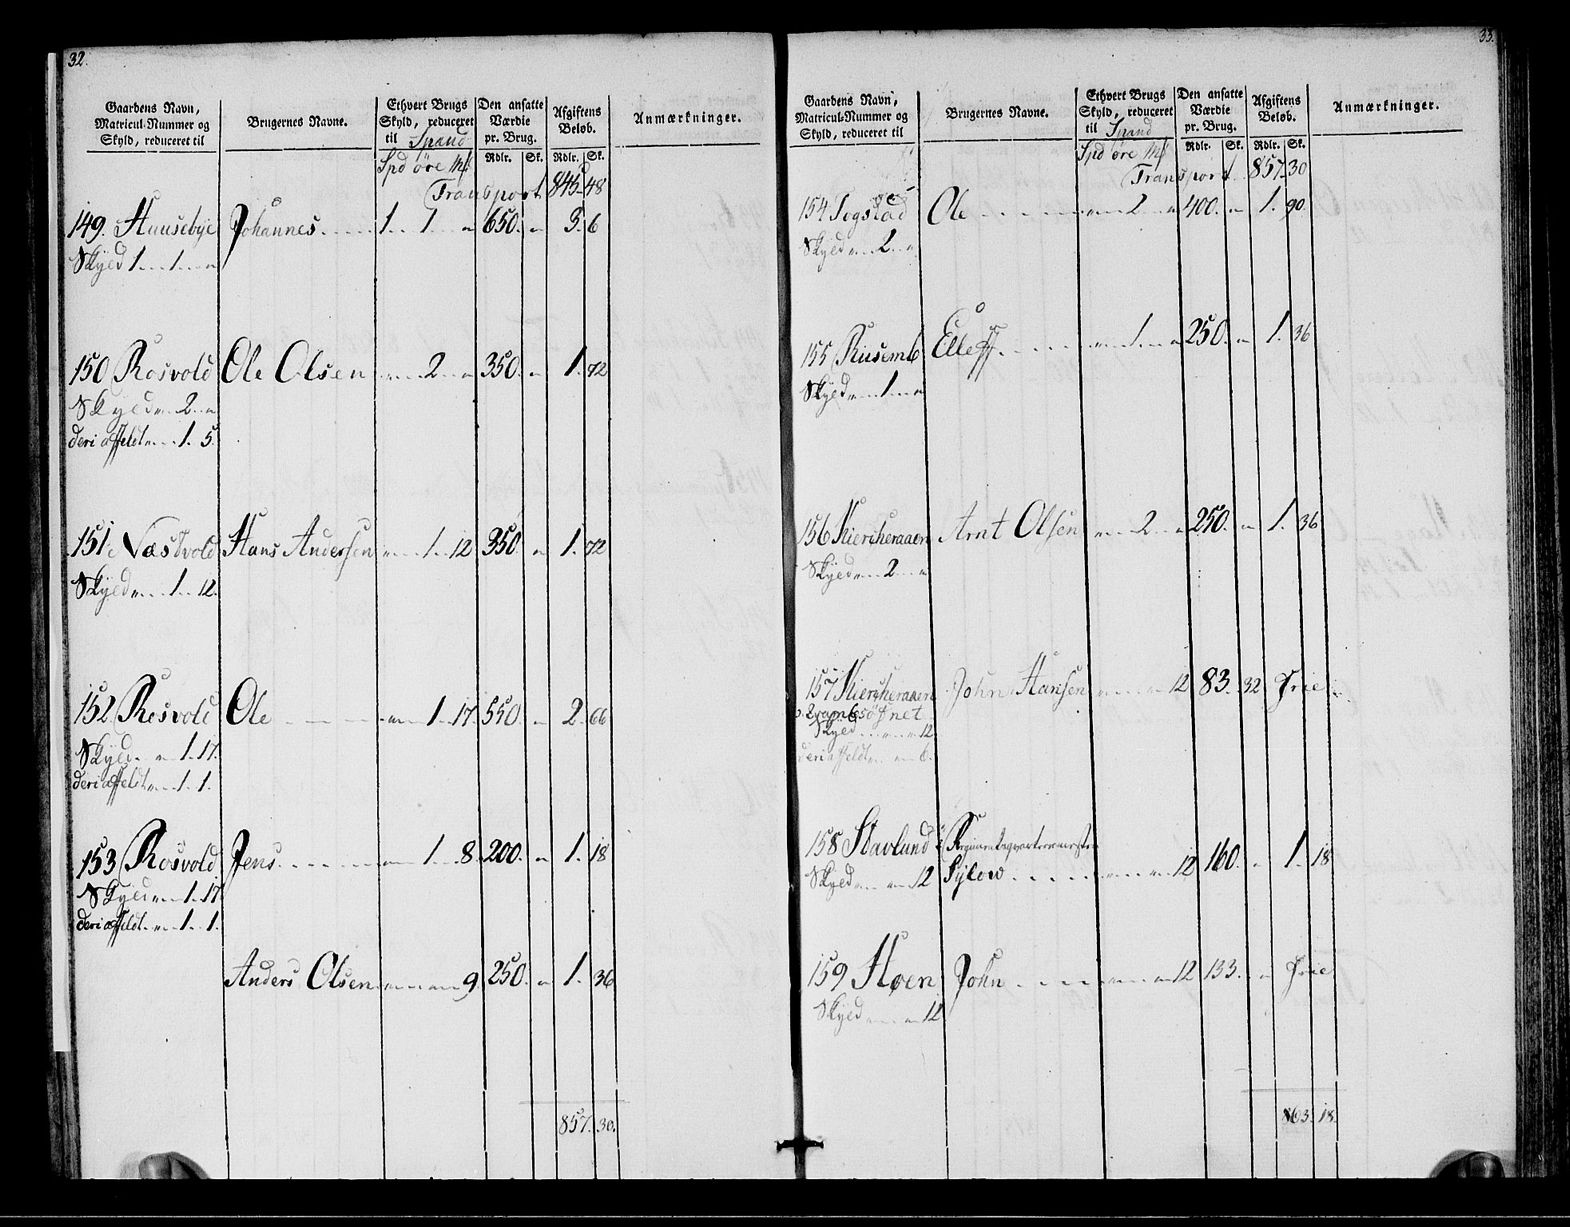 32.
Gaardens Navn, Matricul-Nummer og Skyld, reduceret til | Brugernes Navne. | Ethvert Brugs Skyld, reduceret til Spand | Den ansatte Værdie pr. Brug. | Afgiftens Beløb. | Anmærkninger.
Spd øre Mk | Rdlr. | Sk. | Rdlr. | Sk.
Transport 845. 48
149. Huusebye Johannes. 1. 1. „ 650. „ 3. 6
Skyld 1. „ 1. „
150 Rosvold Ole Olsen „ 2. „ 350. „ 1. 72
Skyld „ 2. „
deri affeldt „ 1. 5.
151. Næstvold Hans Andersen „ 1. 12. 350 „ 1. 72
Skyld „ 1. 12.
152 Resvold Ole „ 1. 17. 550. „ 2. 66
Skyld „ 1. 17.
deri affeldt „ 1. 1.
153 Rosvold Jens „ 1. 8. 200. „ 1. 18
Skyld „ 1. 17.
deri affeldt „ 1. 1.
Anders Olsen „ „ 9. 250. „ 1. 36
857. 30.
33.
Gaardens Navn, Matricul-Nummer og Skyld, reduceret til | Brugernes Navne. | Ethvert Brugs Skyld, reduceret til Spand | Den ansatte Værdie pr. Brug. | Afgiftens Beløb. | Anmærkninger.
Spd øre Mk | Rdlr. | Sk. | Rdlr. | Sk.
Transport 857. 30
154 Togstad Ole „ 2. „ 400. „ 1. 90.
Skyld „ 2. „
155 Riisem Ellef „ 1. „ 250. „ 1. 36
Skyld „ 1. „
156 Kiercheraaen Arnt Olsen „ 2. „ 250. „ 1. 36
Skyld „ 2. „
157 Kiercheraaen John Hansen „ „ 12 83. 32 Frie
Skyld „ „ 12.
deri affeldt „ „ 6.
158 Stavlund Regimentsqvarteermester
Skyld „ „ 12 Sylow „ „ 12 160. „ 1. 18
159 Høen John „ „ 12 133. „ Frie
Skyld „ „ 12
863. 18.